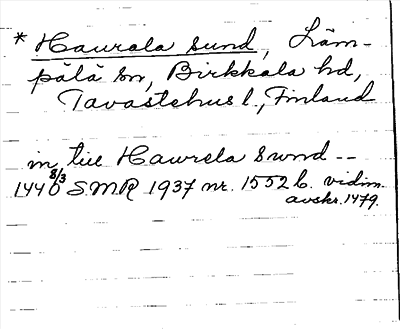 * Haurala sund, Läm-
pälä sn, Birkkala hd,
Tavastehus l., Finland
in till Hawrela Swnd --
1440 8/3 S.M.R 1937 nr. 1552 b. vidim.
avskr. 1479.